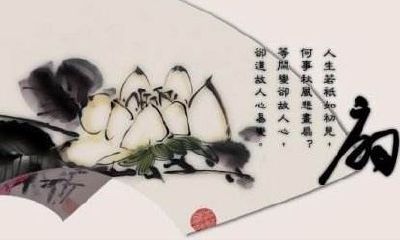 人生若衹如初見，
何事秋風悲畫扇？
等閒變卻故人心，
卻道故人心易變。
扇